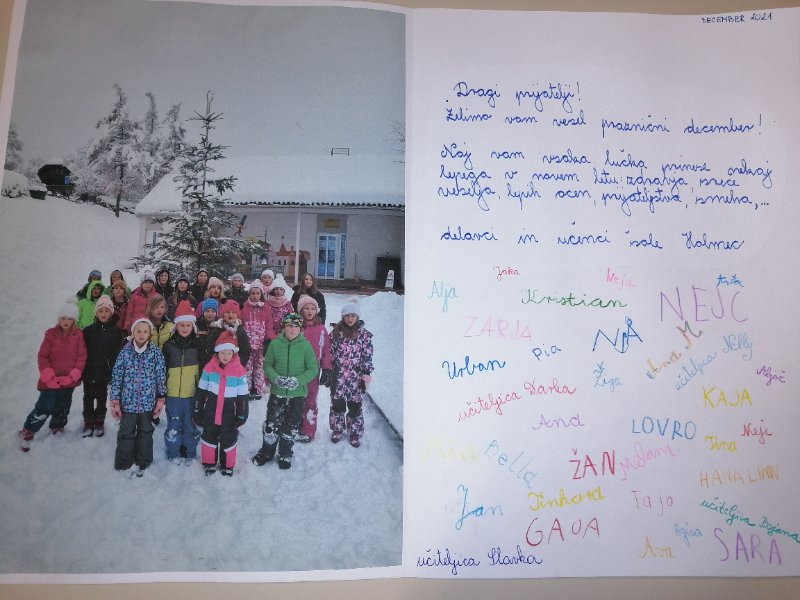 DECEMBER 2021
Dragi prijatelji!
Želimo vam vesel praznični december!
Naj vam vsaka lučka prinese nekaj
lepega v novem letu: zdravja, sreče
veselja, lepih ocen, prijateljstva, smeha,...
delavci in učenci šole Holmec
Alja
Jaka
Neja
Kristian
NEJC
ZARJA
Urban
pia
Žiga
Ana M
učiteljica Nelly
Aljaž
učiteljica Darka
KAJA
And
LOVRO
Tina
Nejc
Bella
ŽAN
HANA LINN
Jan
Tinkard
Tajo
učiteljica Bojana
GAJA
Ava
SARA
učiteljica Slavka